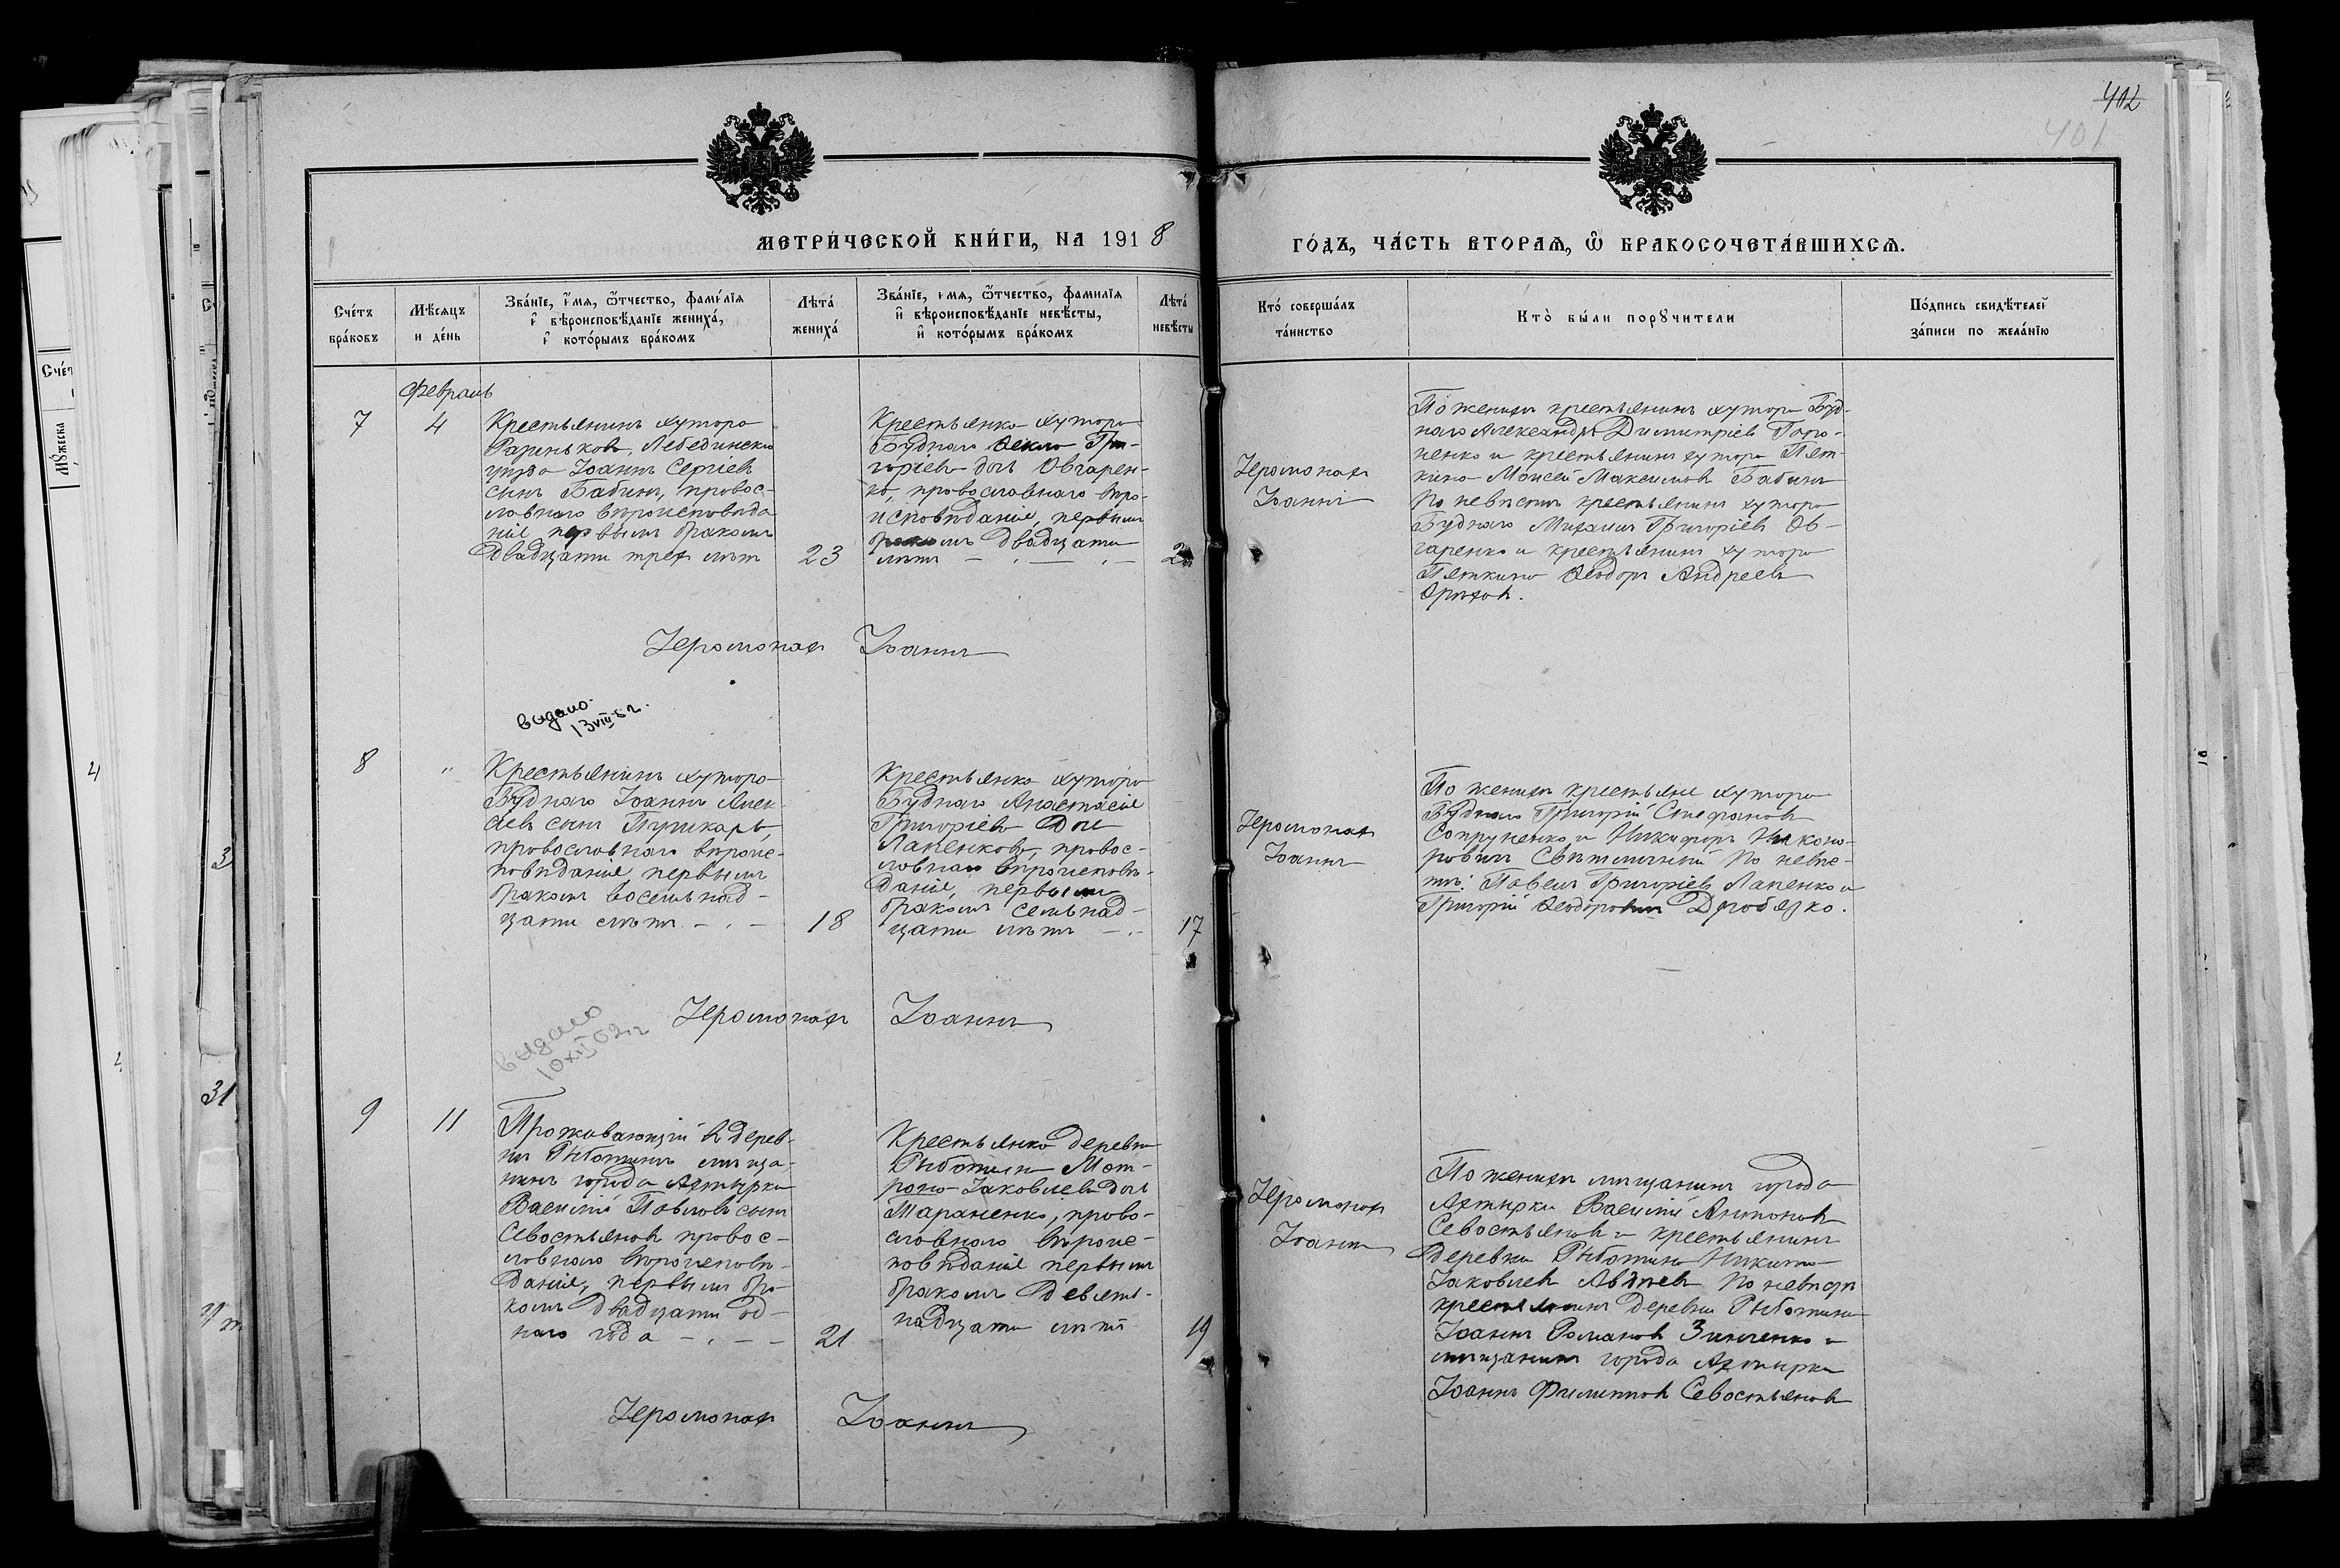 402
401
МЕТРИ́ЧЕСКОЙ КНИ́ГИ, НА 1918
ГО́ДЪ, ЧА́СТЬ ВТОРАѦ, Ѽ БРАКОСОЧЕТА́ВШИХСѦ.
Сче́тъ бра́ковъ
Мѣ́сѧцъ и де́нь
Зва́нїе, и҆́мѧ, ѻ҆́тчество, фами́лїѧ и҆ вѣроисповѣ́данїе жениха́, и҆ кото́рымъ бра́комъ
Лѣта̀ жениха̀
Зва́нїе, и҆мѧ, ѻ҆́тчество, фамилїѧ и҆ вѣроисповѣ́данїе невѣ́сты, и҆ кото́рымъ бра́комъ
Лѣта̀ невѣ́сты
Кто̀ соверша́лъ та́инство
Кто̀ бы́ли порꙋчители
По́дпись свидѣ́телей за́писи по жела́нїю
Февраль
7
4
Крестьянинъ хутора
Лебединскаго
уѣзда Іоаннъ Сергіевъ
сынъ Бабинъ, правос-
лавнаго вѣроисповѣда
нія первымъ бракомъ
двадцати трехъ лѣтъ
23
Крестьянка хутора
Буднаго Ѳекла Гри-
горіева дочь Овчарен-
ко, православнаго вѣро-
исповѣданія, первымъ
бракомъ двадцати
лѣтъ
Іеромонахъ
Іоаннъ
По женихѣ крестьянинъ хутора Буд-
наго Александръ Димитріевъ
и крестьянинъ хутора Пят-
кина Моисей Максимовъ Бабинъ
по невѣстѣ крестьянинъ хутора
Буднаго Михаилъ Григоріевъ Ов-
чаренко и крестьянинъ хутора
Пяткина Ѳеодоръ Андреевъ
Орѣховъ.
Іеромонахъ Іоаннъ
видано
13 VIII
8
"
Крестьянинъ хутора
Буднаго Іоаннъ Алек-
сынъ
православнаго вѣроис-
повѣданія, первымъ
бракомъ восемьнад-
цати лѣтъ
18
Крестьянка хутора
Буднаго Анастасія
Григоріева дочь
Лапенкова, правос-
лавнаго вѣроисповѣ-
данія, первымъ
бракомъ семьнад-
цати лѣтъ
17
Іеромонахъ
Іоаннъ
По женихѣ крестьяне хутора
Буднаго Григорій Стефановъ
Сопруненко и Никифоръ Никано-
ровичъ Свѣтличный по невѣс-
тѣ: Павелъ Григоріевъ Лапенко и
Григорій Ѳеодоровичъ Дробязко.
Іеромонахъ Іоаннъ
видано
9
11
Проживающій в дерев-
нѣ Рыботинѣ мѣща-
нинъ города Ахтырки
Василій Павловъ сынъ
Севостьяновъ правос-
лавнаго вѣроисповѣ-
данія, первымъ бра-
комъ двадцати од-
ного года
21
Крестьянка деревни
Рыботины Мат-
рона Іаковлева дочь
Тараненко, право-
славнаго вѣроис-
повѣданія первымъ
бракомъ девять-
надцати лѣтъ
19
Іеромонахъ
Іоаннъ
По женихѣ мѣщанинъ города
Ахтырки Василій Антоновъ
Севостьяновъ и крестьянинъ
деревни Рыботины Никита
Іаковлевъ Авдѣевъ по невѣстѣ
крестьянинъ деревни Рыботины
Іоаннъ Романовъ Зинченко и
мѣщанинъ города Ахтырки
Іоаннъ Филипповъ Севостьяновъ
Іеромонахъ Іоаннъ